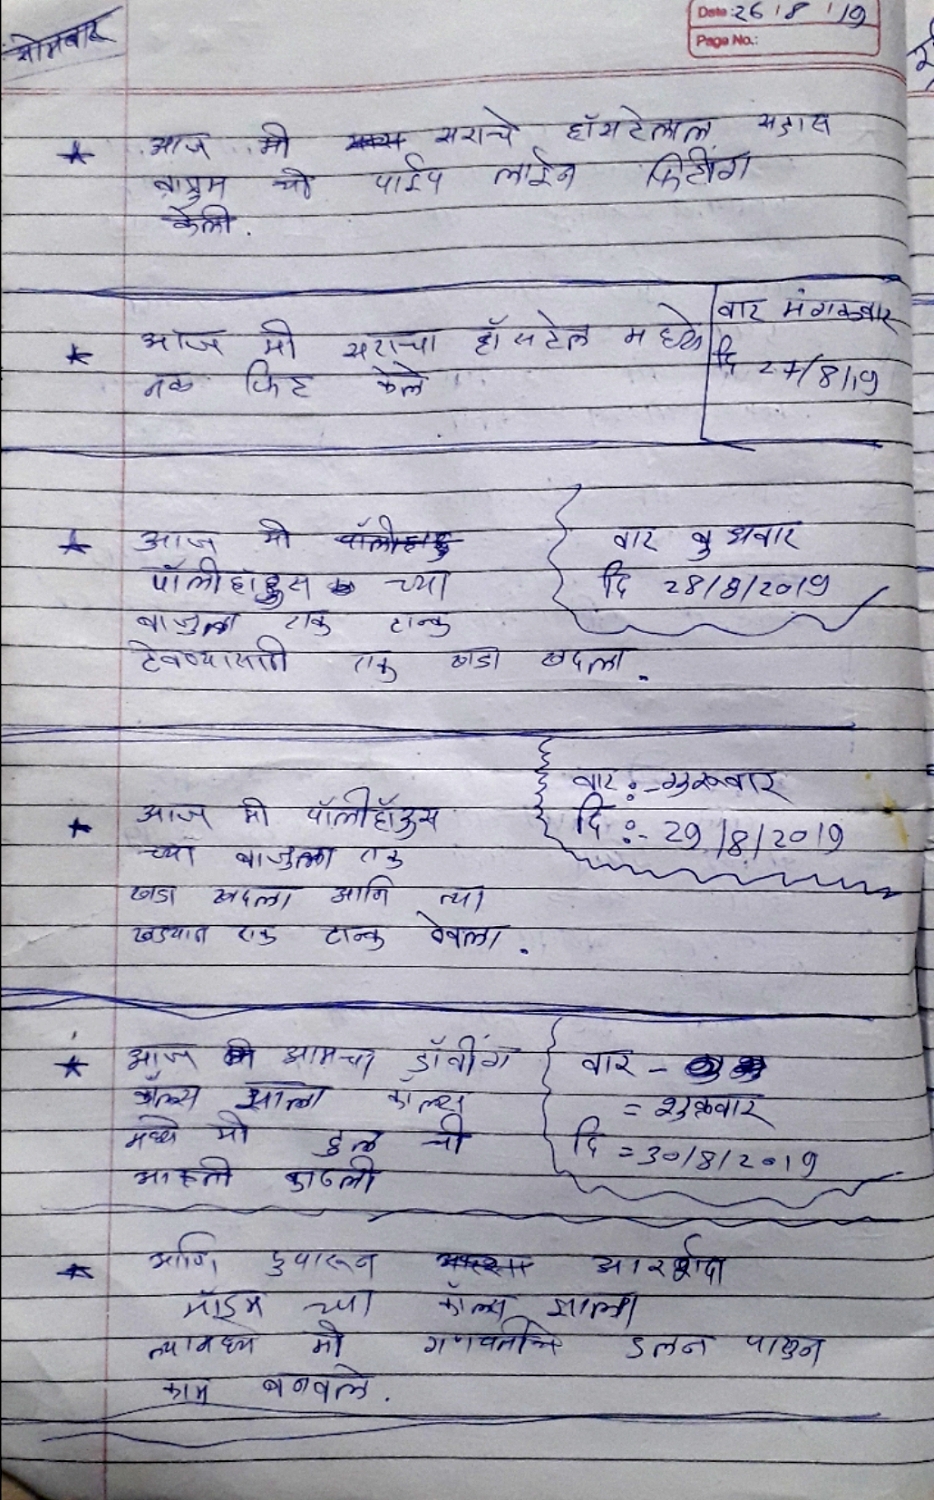 सोमवार
Date: 26/8/19
Page No.:
आज मी सराचे हॉसटेलल संडास
बाथ्रुम ची पाईप लाईन फिटींग
केली.
वार मंगळवार
दि 27/8/19
आज मी सराचा हॉसटेल मध्ये
नळ फिट केले
वार बुधवार
दि 28/8/2019
आज मी
पॉलीहॉऊस च्या
बाजुला एक टाक
ठेवण्यासाठी एक खडा खदला.
वार :- गुरुवार
दि :- 29/8/2019
आज मी पॉलीहॉऊस
च्या बाजुला एक
खडा खदला आणि त्या
खड्यात एक टाक ठेवला.
वार -
= शुक्रवार
दि = 30/8/2019
आज आमचा ड्रॉवींग
कॉल्स झाला कॉल्स
मध्ये मी ची
आकृती काढली
आणि दुपारुन
मॅडम च्या कॉल्स झाला
त्यामध्ये मी गणपतीचे पासुन
काम बनवले.